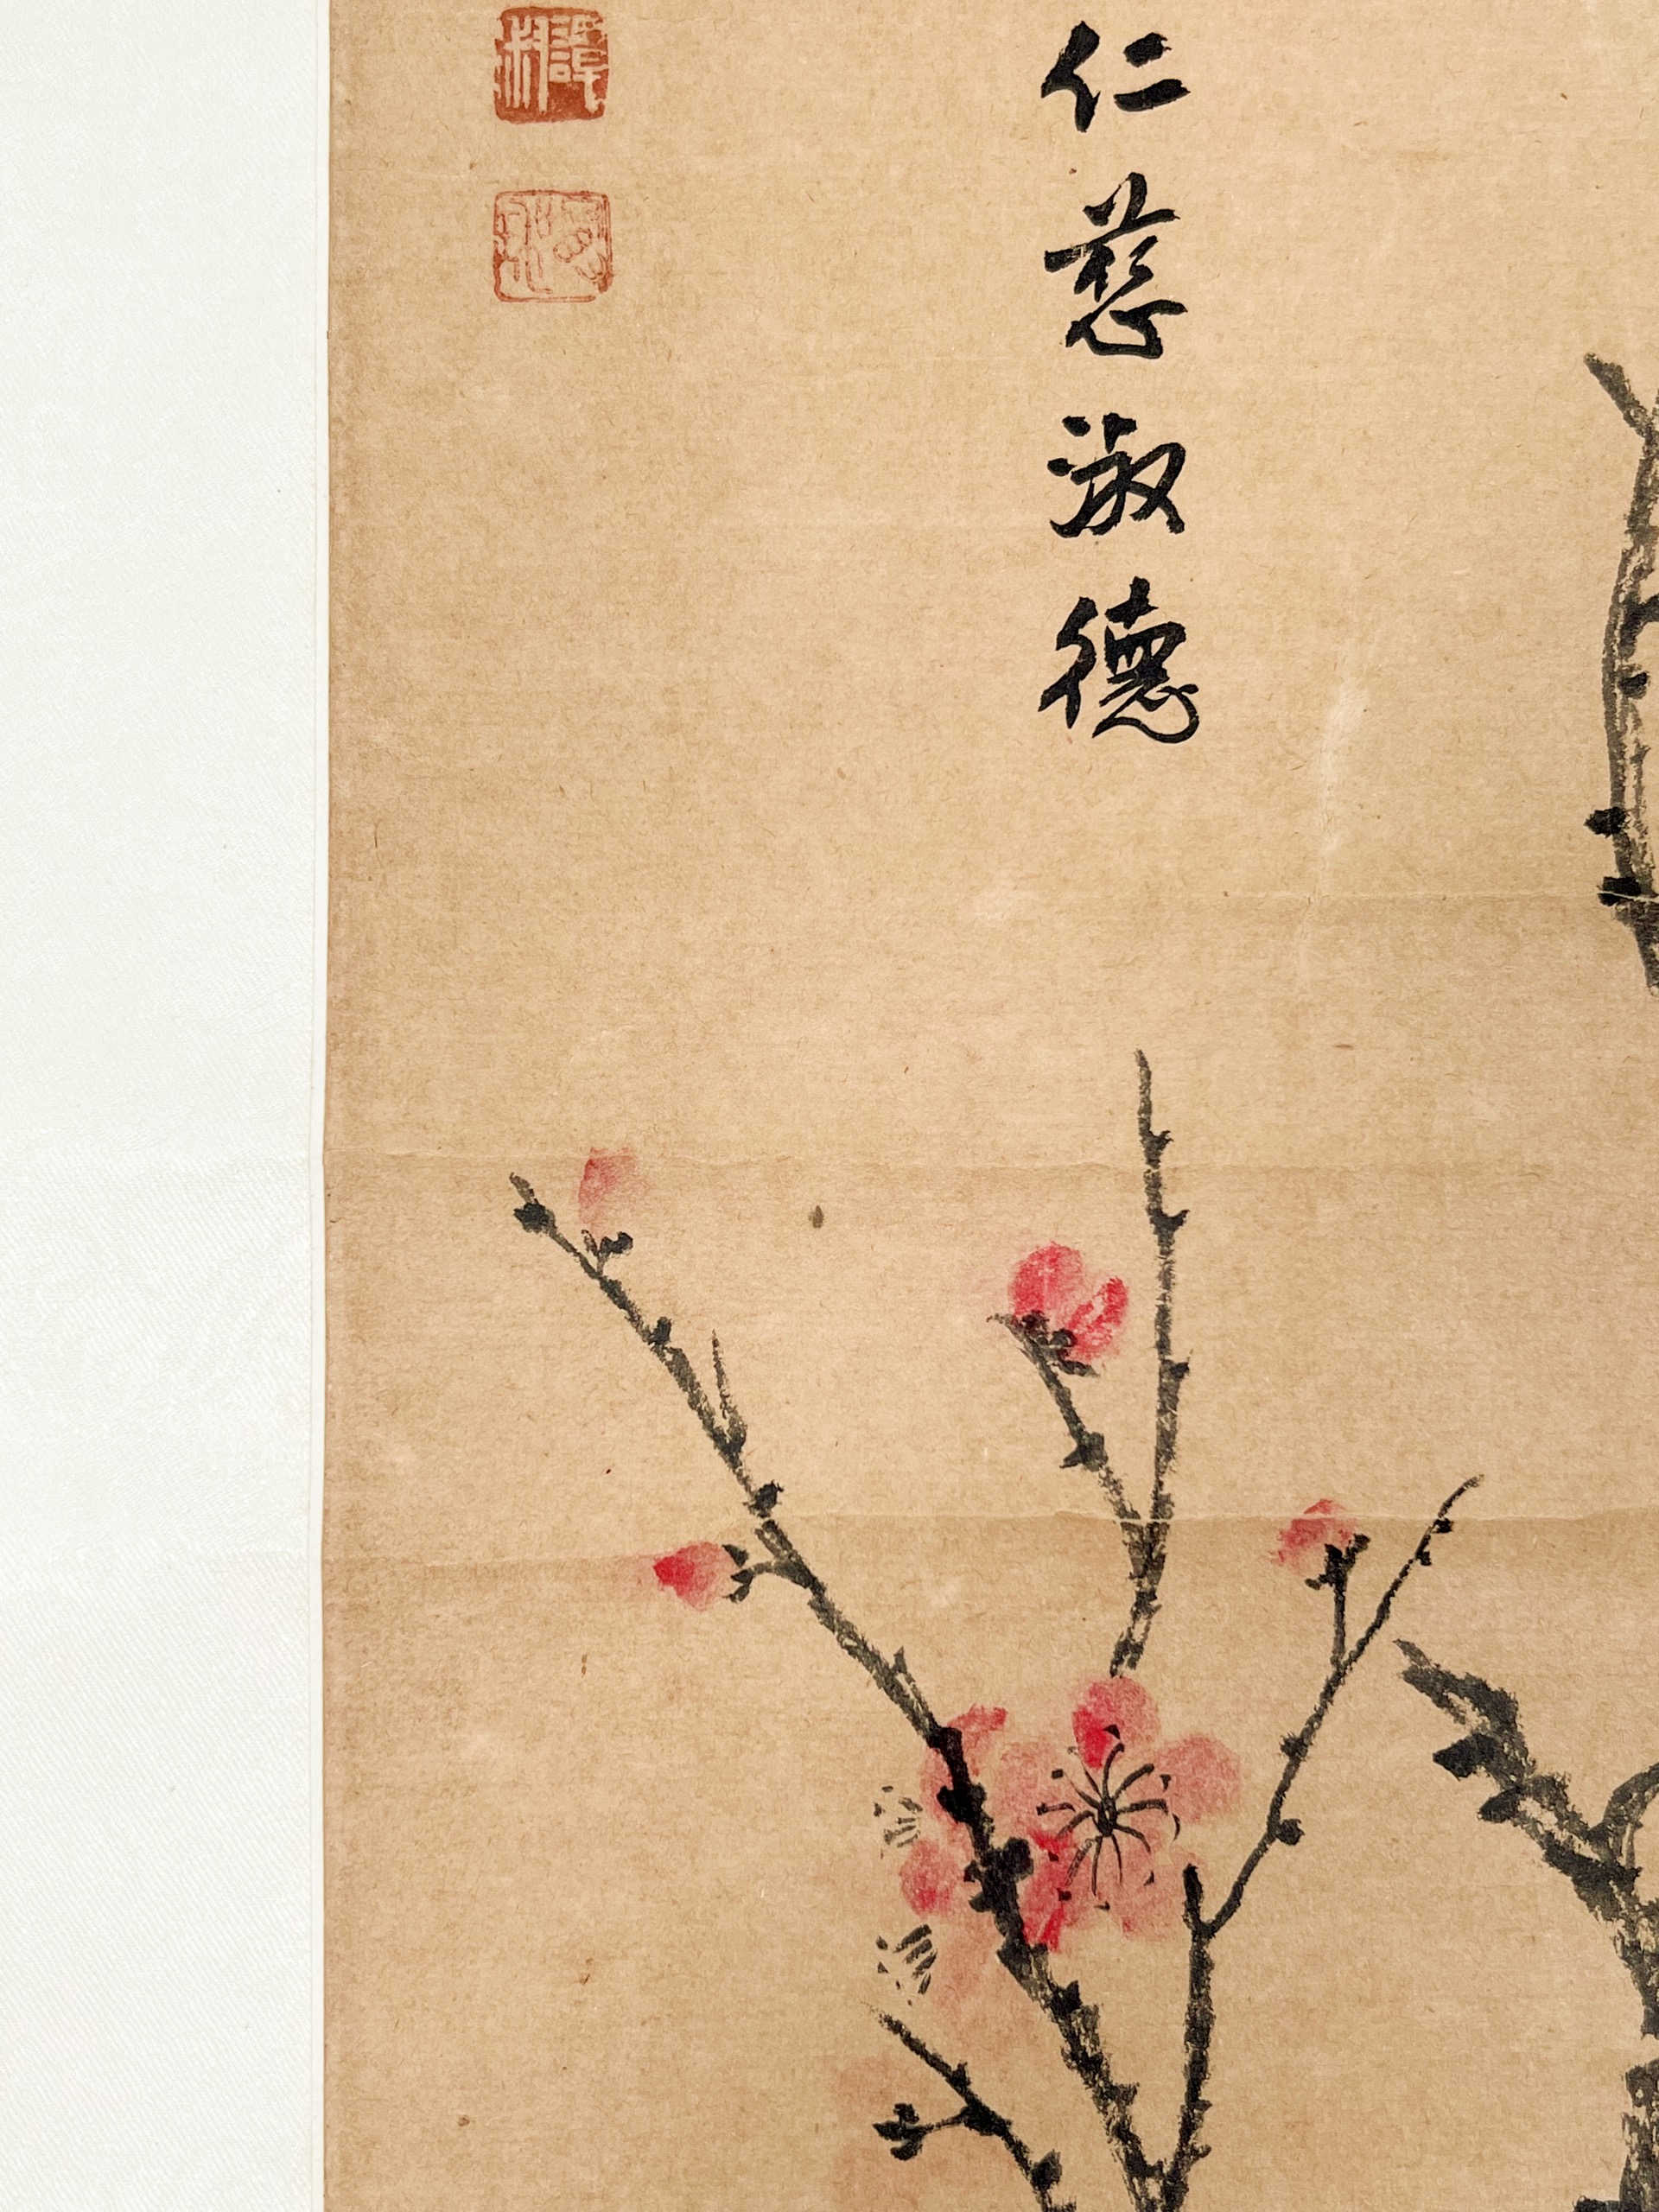 仁慈淑德